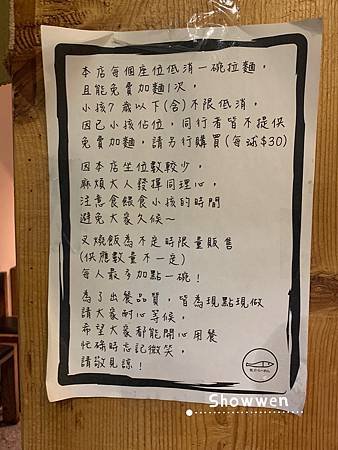 本店每個座位低消一碗拉麵，
且能免費加麵1次，
小孩7歲以下(含)不限低消，
因已小孩佔位，同行者皆不提供
免費加麵，請另行購買(每球$30)
因本店坐位數較少，
麻煩大人發揮同理心，
注意食餵食小孩的時間
避免大家久候~
叉燒飯為不定時限量販售
(供應數量不一定)
每人最多加點一碗！
為了出餐品質，皆為現點現做
請大家耐心等候，
希望大家都能開心用餐
忙碌時忘記微笑，
請敬見諒！
Showwen